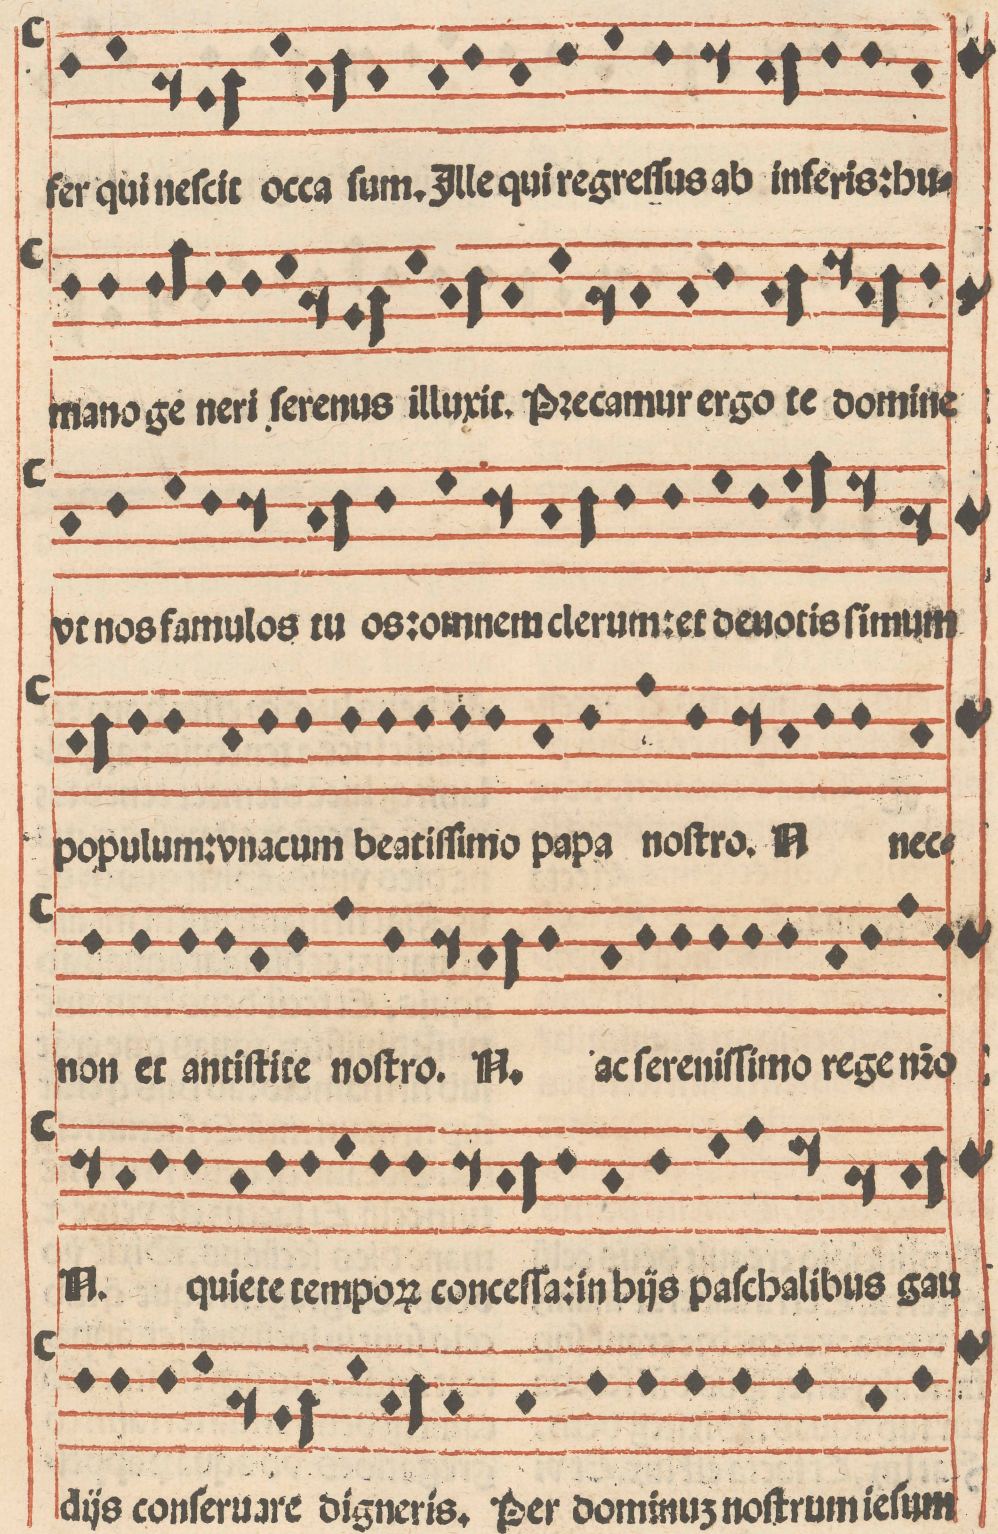 fer qui nescit occa sum. Ille qui regressus ab inferis: hu-
mano ge neri serenus illuxit. Precamur ergo te domine
vt nos famulos tu os: omnem clerum: et deuotis simum
populum: vnacum beatissimo papa nostro. N nec-
non et antistite nostro. N. ac serenissimo rege nr̄o
N. quiete tempoꝝ concessa: in hijs paschalibus gau
dijs conseruare digneris. Per dominuꝫ nostrum iesum